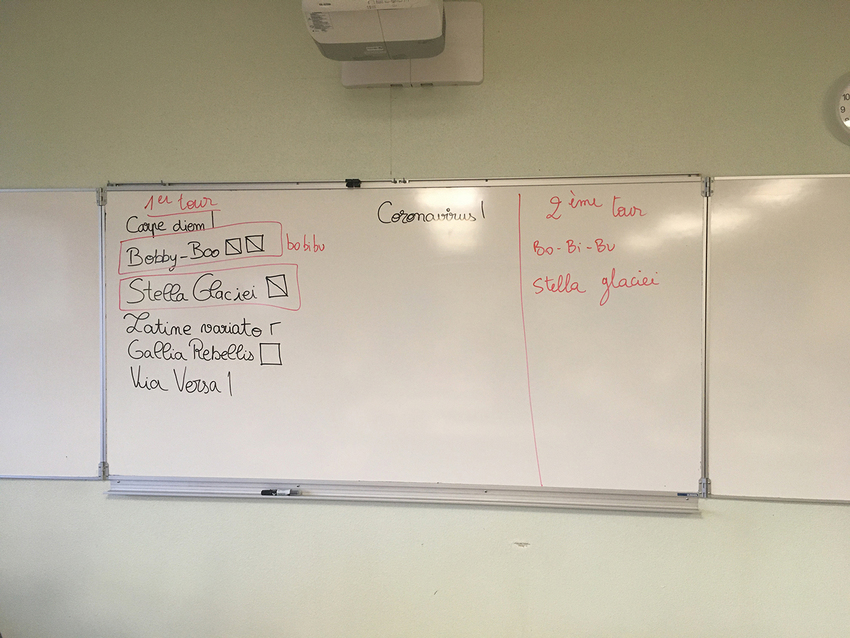 1er tour
Carpe diem
Bobby-Boo
bobibu
Stella Glaciei
Latine variato
Gallia Rebellis
Via Versa
Coronavirus
2ème tour
Bo-Bi-Bu
Stella glaciei
10
9